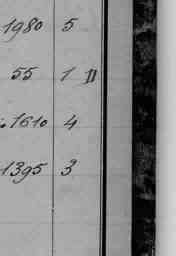 1980 5
55 1 D
1610 4
1395 3